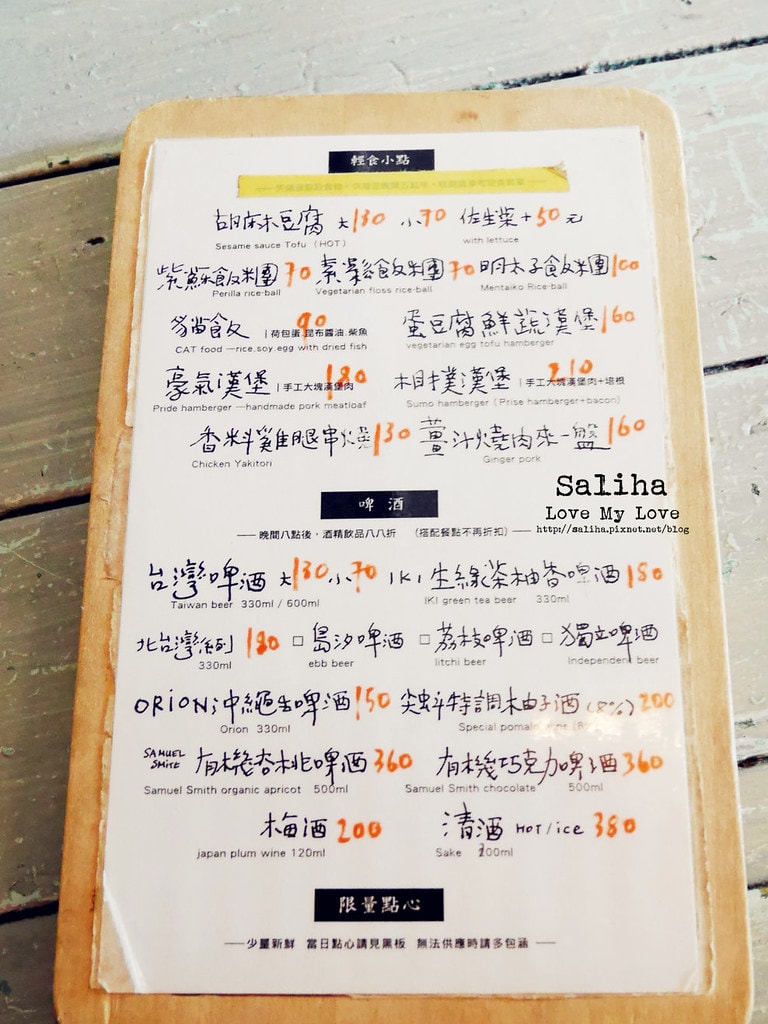 輕食小點
胡麻木豆腐 大130 小70 佐生菜+50元
Sesame sauce Tofu (HOT) with lettuce
紫蘇飯糰70 素鬆飯糰70 明太子飯糰100
Perilla rice-ball Vegetarian floss rice-ball Mentaiko Rice-ball
貓飯 |荷包蛋.昆布醬油.柴魚 90 蛋豆腐鮮蔬漢堡160
CAT food —rice,soy,egg with dried fish vegetarian egg tofu hamberger
豪氣漢堡 |手工大塊漢堡肉 180 相撲漢堡 |手工大塊漢堡肉+培根 210
Pride hamberger —handmade pork meatloaf Sumo hamberger (Prise hamberger+bacon)
香料雞腿串燒130 薑汁燒肉來一盤160
Chicken Yakitori Ginger pork
Saliha
Love My Love
http://saliha.pixnet.net/blog
啤酒
——晚間八點後，酒精飲品八八折 (搭配餐點不再折扣)——
台灣啤酒 大130小70 IKI 生綠茶柚香啤酒180
Taiwan beer 330ml / 600ml IKI green tea beer 330ml
北台灣系列 180 □島汐啤酒 □荔枝啤酒 □獨立啤酒
330ml ebb beer litchi beer Independent beer
ORION沖繩生啤酒150 尖蚪特調柚子酒(8%)200
Orion 330ml Special
SAMUEL SMITE 有機杏桃啤酒360 有機巧克力啤酒360
Samuel Smith organic apricot 500ml Samuel Smith chocolate 500ml
梅酒200 清酒 HOT/ice 380
japan plum wine 120ml Sake 300ml
限量點心
——少量新鮮 當日點心請見黑板 無法供應時請多包涵——